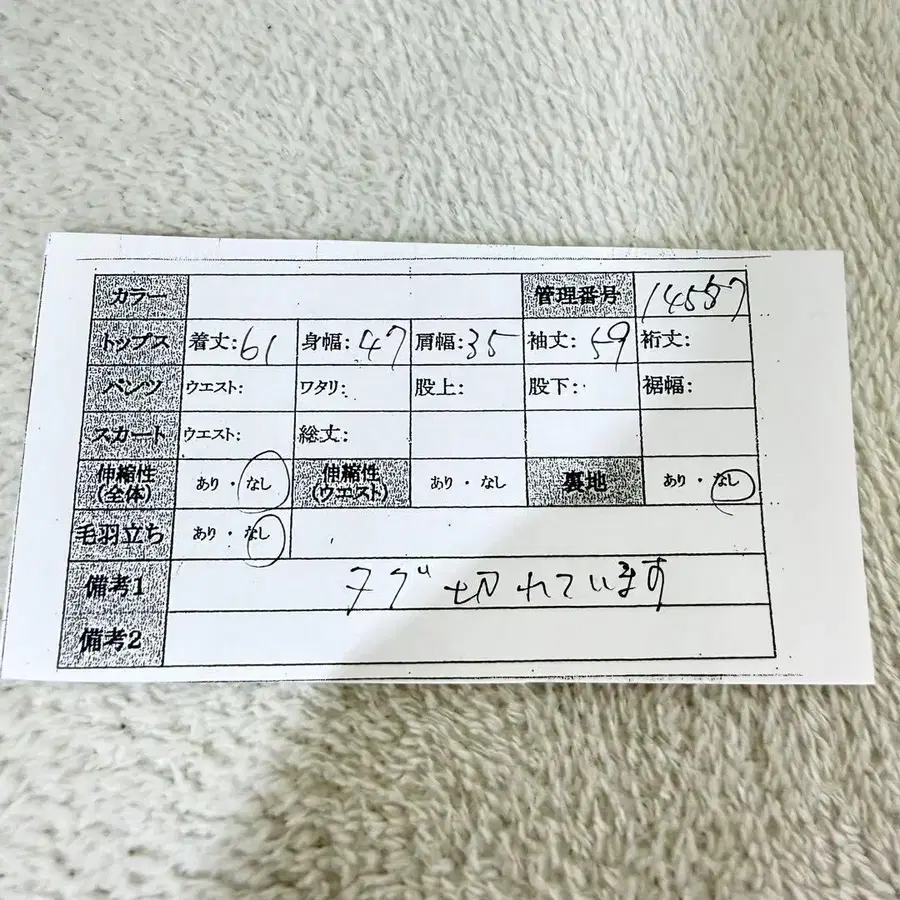 カラー 管理番号 14557
トップス 着丈:61 身幅:47 肩幅:35 袖丈:59 裄丈:
パンツ ウエスト: ワタリ: 股上: 股下: 裾幅:
スカート ウエスト: 総丈:
伸縮性(全体) あり・なし 伸縮性(ウエスト) あり・なし 裏地 あり・なし
毛羽立ち あり・なし
備考1 タグ切れています
備考2